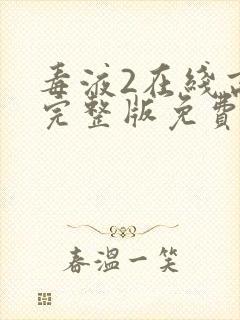 毒液2在线
完整版免费
春温一笑